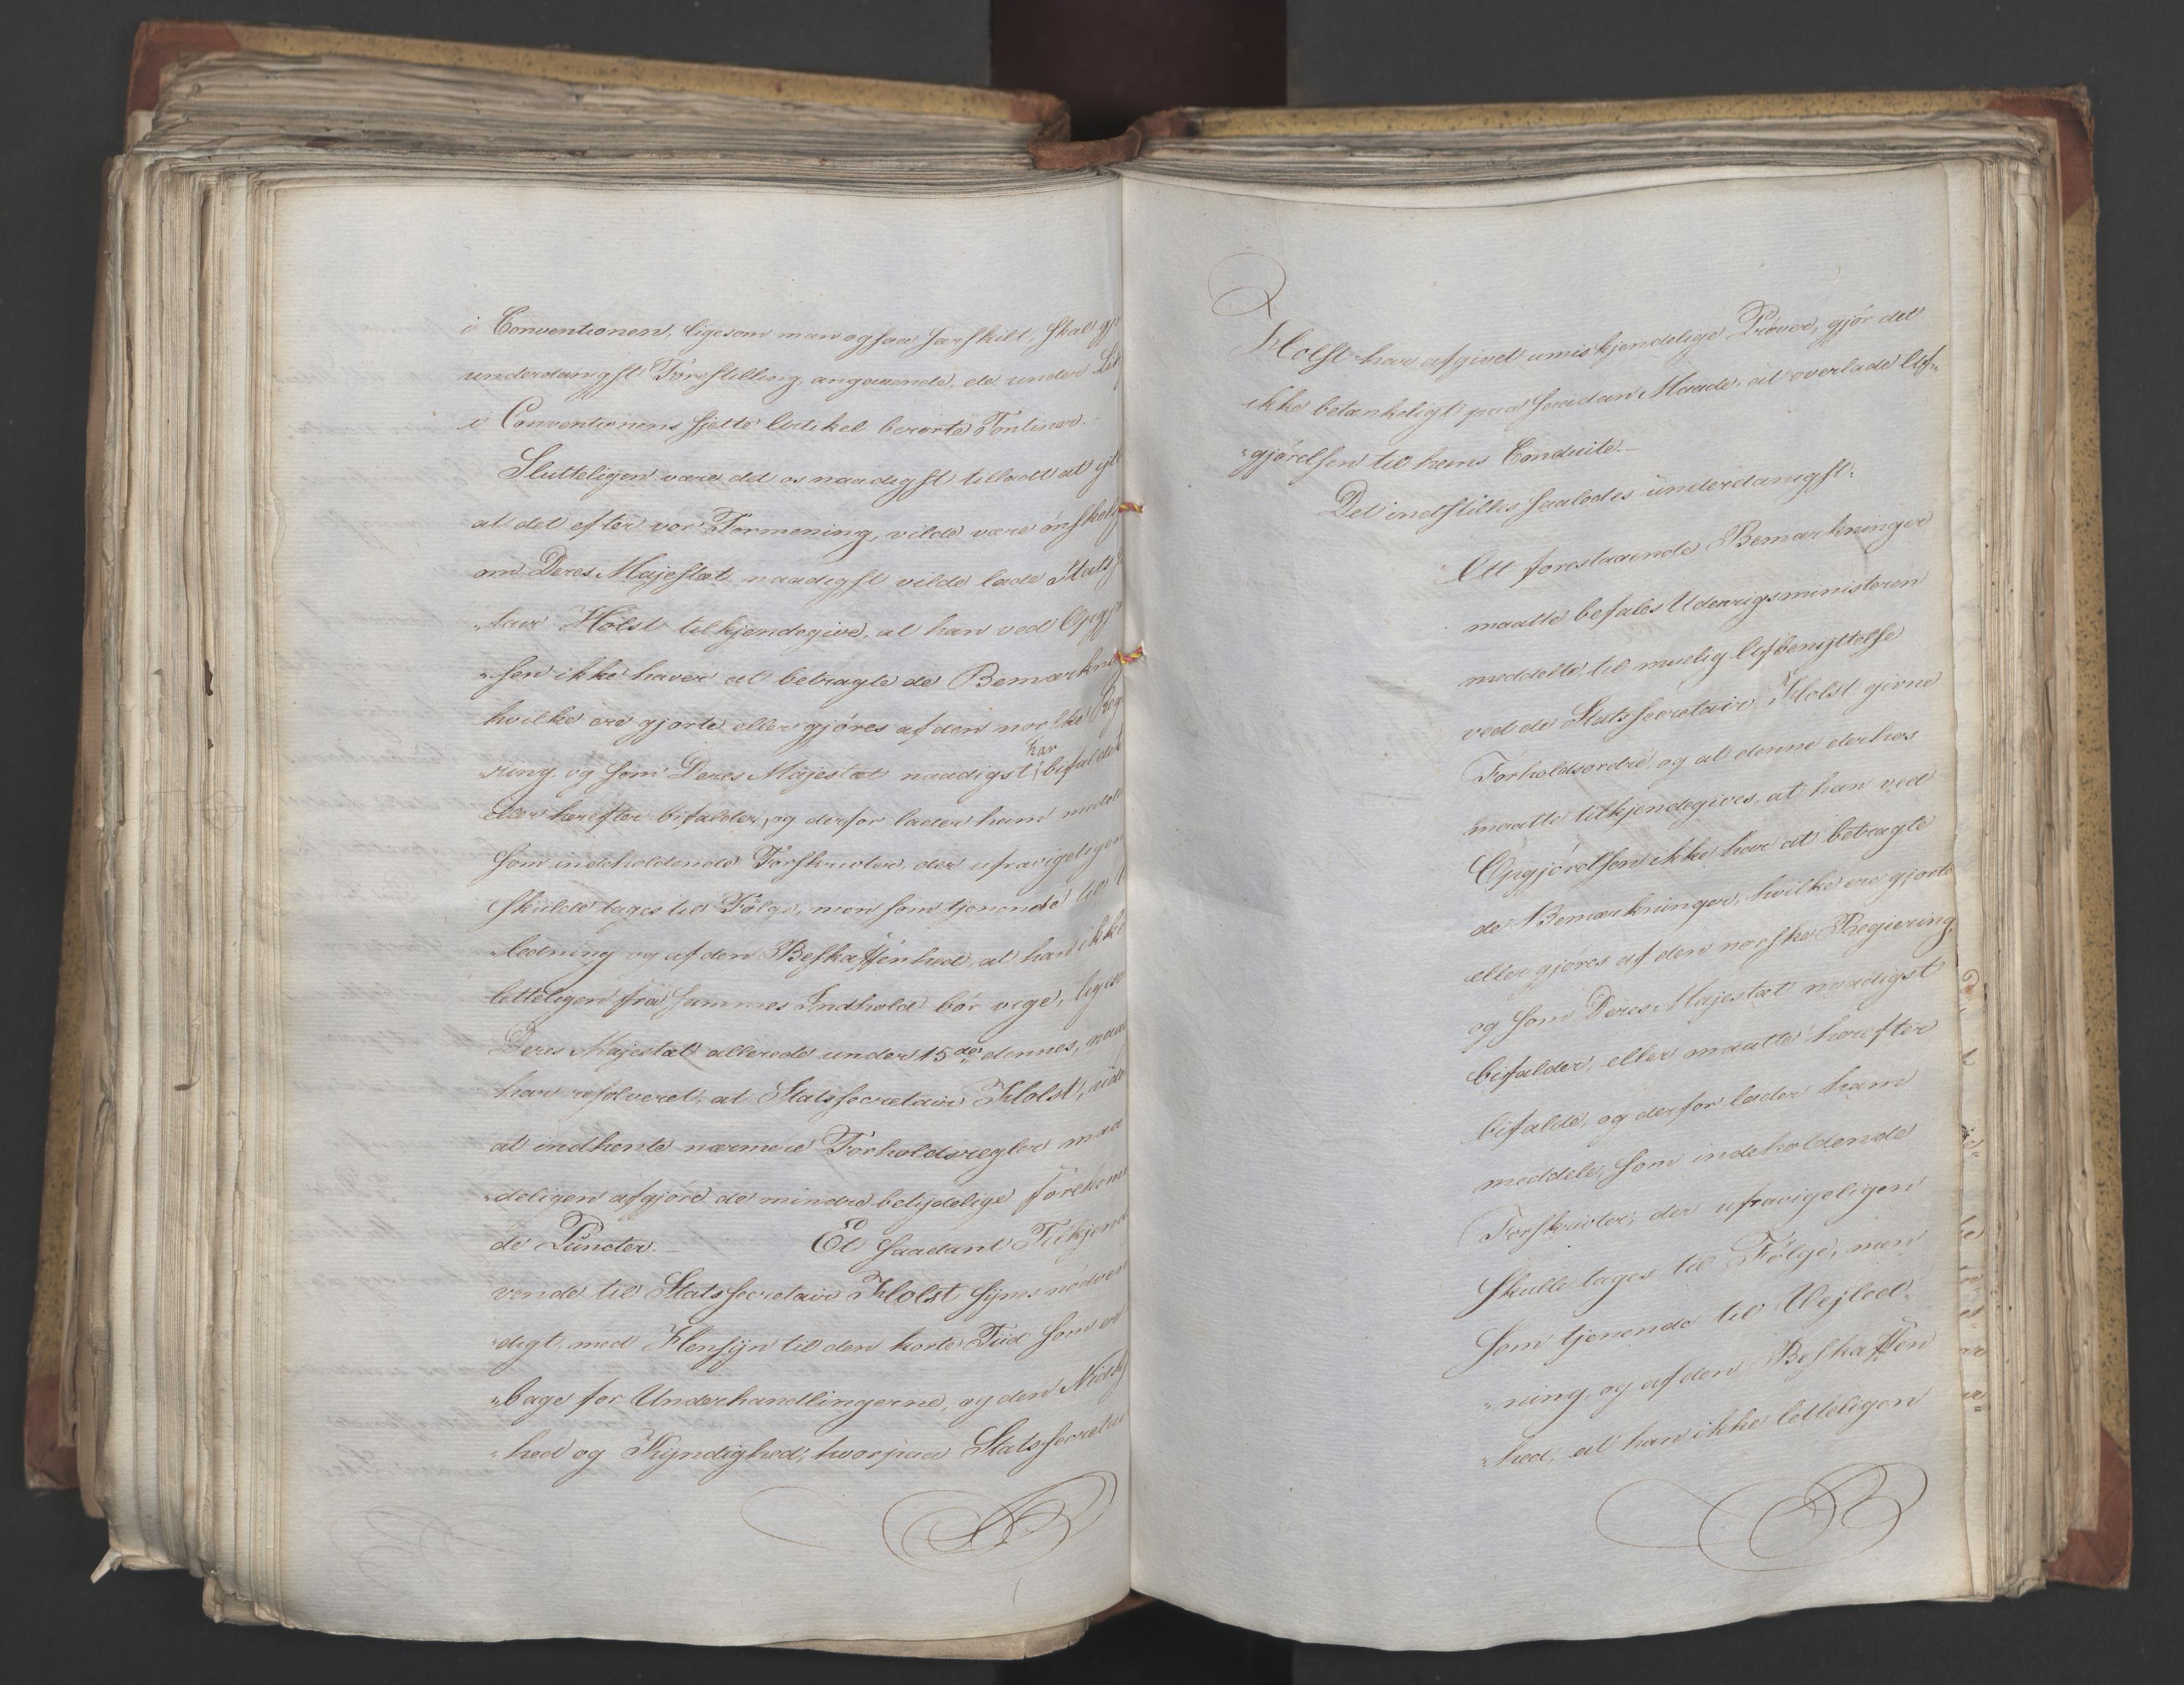 i Conventionen, ligesom man ogsaa særskilt, skal gjø
underdanigst Forestilling angaaende, de under Lit
i Conventionens sjette Artikel berørte Tontiner.
Slutteligen være det os naadigst tilladt at ytt
at det efter vor Formening, vilde være ønskelig
om Deres Majestæt naadigst vilde lade Stats
"tair Holst tilkjendegive, at han ved Opgjø
"sen ikke haver at betragte de Bemærkni
hvilke ere gjorte eller gjøres af den norske Reg
"ring og som Deres Majestæt naadigst har bifaldet
eller herefter bifalder, og derfor lader ham medde
som indeholdende Forskrivter, der ufravigeligen
skulde tages til Følge, men som tjenende til V
"ledning og af den Beskaffenhed, at han ikke
letteligen fra sammes Indhold bør vige, liges
Deres Majestæt allerede under 15de dennes, naa
har resolveret, at Statssecretair Holst, ude
at indhente nærmere Forholdsregler maa
"deligen afgjøre de mindre betydelige forekom
de Puncter. — Et saadant Tilkjend
vende til Statssecretair Holst synes nødven
"digt med Hensyn til den korte Tiid som er
"bage for Underhandlingerne, og den Nidkj
"hed og Kyndighed, hvorpaa Statssecretai
Holst har afgivet umiskjendelige Prøver, gjør det
ikke betænkeligt paa saadan Maade, at overlade Af"
"gjørelsen til hans Conduite. —
Det indstilles saaledes underdanigst:
"At forestaaende Bemærkninger
maatte befales Udenrigsministeren
meddelte, til muelig Afbenyttelse
ved de Statssecretair Holst givne
Forholdsordre, og at denne derhos
maatte tilkjendegives, at han ved
Opgjørelsen ikke har at betragte
de Bemærkninger, hvilke ere gjorte
eller gjøres af den norske Regjering,
og som Deres Majestæt naadigst
bifalder, eller maatte herefter
bifalde, og derfor lader ham
meddele, som indeholdende
Forskrivter, der ufravigeligen
skulle tages til Følge, men
som tjenende til Vejled"
"ning, og af den Beskaffen
"hed, at han ikke letteligen